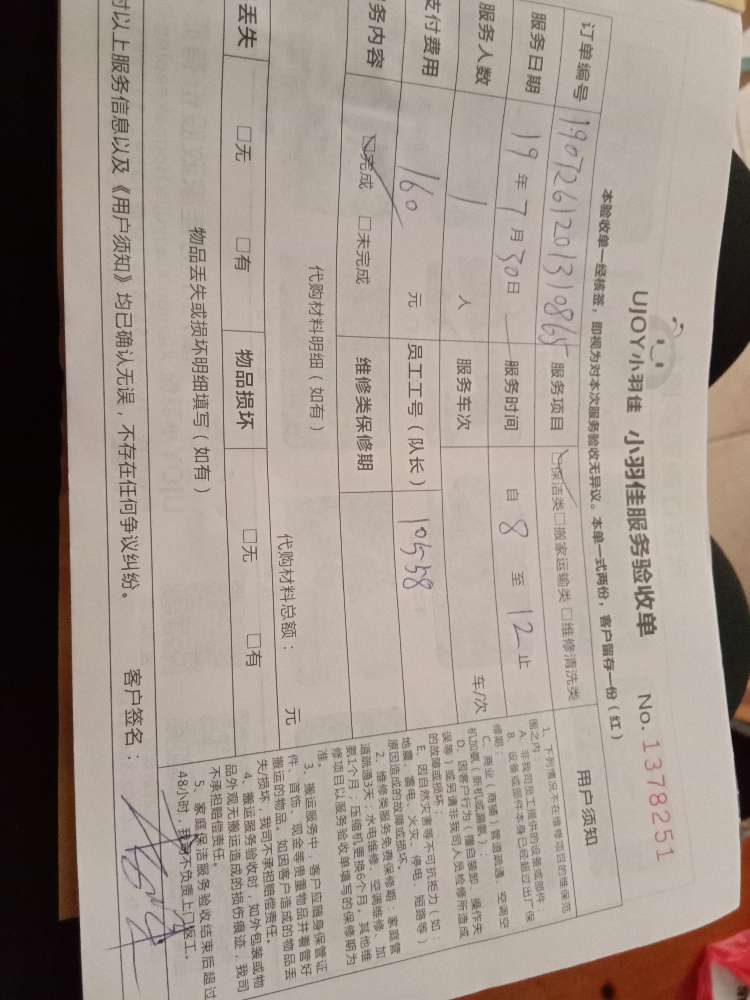 UJOY小羽佳 小羽佳服务验收单 No. 1378251
本验收单一经核签，即视为对本次服务验收无异议。本单一式两份，客户留存一份（红）
订单编号 1907261201310865 服务项目 保洁类 □搬家运输类 □维修清洗类
服务日期 19年7月30日 服务时间 自 8 至 12 止
服务人数 1 人 服务车次 车/次
支付费用 160 元 员工工号（队长） 10558
务内容 完成 □未完成 维修类保修期
代购材料明细（如有）
代购材料总额： 元
丢失 □无 □有 物品损坏 □无 □有
物品丢失或损坏明细填写（如有）
对以上服务信息以及《用户须知》均已确认无误，不存在任何争议纠纷。 客户签名：
用户须知
1、下列情况不在维修项目的维保范
围之内：
A、非我司员工提供的设备或部件
B、设备或部件本身已经超过出厂保
修期；
C、商业（商铺）管道疏通、空调空
机加氨（新机或漏氨）；
D、因客户行为（擅自装卸、操作失
误等）或另请非我司人员检修所造成
的故障或损坏；
E、因自然灾害等不可抗拒力（如：
地震、雷电、火灾、停电、短路等）
原因造成的故障或损坏。
2、维修类服务免费保修期：家庭管
道疏通3天；水电维修、空调维修、加
氨1个月；压缩机更换6个月。其他维
修项目以服务验收单填写的保修期为
准。
3、搬运服务中，客户应随身保管证
件、首饰、现金等贵重物品并看管好
搬运的物品。如因客户造成的物品丢
失/损坏，我司不承担赔偿责任。
4、搬运服务验收时，如外包装或物
品外观无搬运造成的损伤痕迹，我司
不承担赔偿责任。
5、家庭保洁服务验收结束后超过
48小时，我司不负责上门返工。